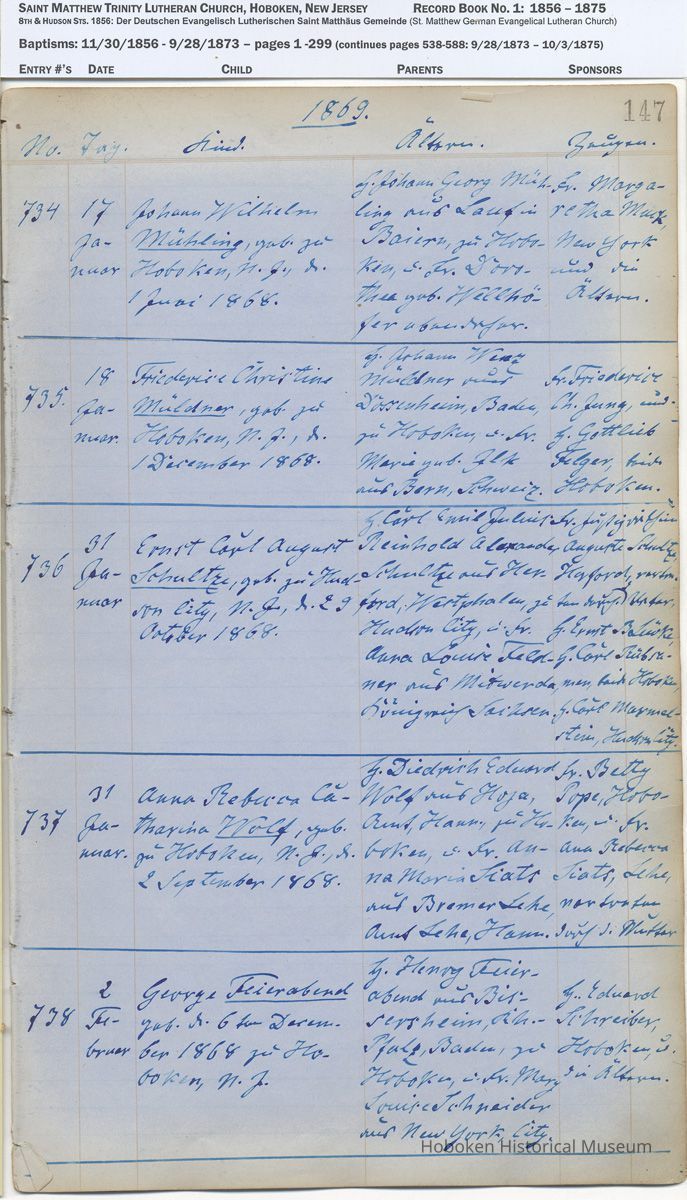 SAINT MATTHEW TRINITY LUTHERAN CHURCH, HOBOKEN, NEW JERSEY RECORD BOOK NO. 1: 1856 – 1875
8TH & HUDSON STS. 1856: Der Deutschen Evangelisch Lutherischen Saint Matthäus Gemeinde (St. Matthew German Evangelical Lutheran Church)
Baptisms: 11/30/1856 - 9/28/1873 – pages 1 -299 (continues pages 538-588: 9/28/1873 – 10/3/1875)
ENTRY #'S DATE CHILD PARENTS SPONSORS
1869. 147
No. Tag. Kind. Ältern. Zeugen.
734
17
Ja-
nuar
Johann Wilhelm
Mühling, geb. zu
Hoboken, N. J., d.
1 Juni 1868.
H. Johann Georg Müh-
ling aus Lauf in
Baiern, zu Hobo-
ken, u. Fr. Doro-
thea geb. Wellhö-
fer ebendaher.
Fr. Marga-
retha
New York
und die
Ältern.
735.
18
Ja-
nuar.
Friederice Christine
Müldner, geb. zu
Hoboken, N. J., d.
1 December 1868.
H. Johann
Müldner aus
Dossenheim, Baden,
zu Hoboken, u. Fr.
Marie geb. Ilk
aus Bern, Schweiz.
Fr. Friederice
Ch. Jung, und
H. Gottlieb
Filger, beide
Hoboken.
736
31
Ja-
nuar
Ernst Carl August
Schultze, geb. zu Hud-
son City, N. J., d. 29
October 1868.
H. Carl Emil Julius
Reinhold Alexander
Schultze aus Her-
ford, Westphalen, zu
Hudson City, u. Fr.
Anna Louise Feld-
ner aus Mitweida,
Königreich Sachsen.
Fr.
Auguste Schultze,
Herford, vertre-
ten durch d. Vater,
H. Ernst
H. Carl Rübsa-
men beide Hoboken,
H. Carl Marmel-
stein, Hudson City.
737
31
Ja-
nuar.
Anna Rebecca Ca-
tharina Wolf, geb.
zu Hoboken, N. J., d.
2 September 1868.
H. Diedrich Eduard
Wolf aus Hoya,
Amt, Hann., zu Ho-
boken, u. Fr. An-
na Maria Siats
aus Bremer Lehe,
Amt Lehe, Hann.
Fr. Betty
Pope, Hobo-
ken, u. Fr.
Anna Rebecca
Siats, Lehe,
vertreten
durch d. Mutter
738
2
Fe-
bruar
George Feierabend
geb. d. 6ten Decem-
ber 1868 zu Ho-
boken, N. J.
H. Henry Feier-
abend aus Bis-
sersheim, Rh.-
Pfalz, Baden, zu
Hoboken, u. Fr. Mary
Louise Schneider
aus New York City.
H. Eduard
Schreiber,
Hoboken, u.
die Ältern.
Hoboken Historical Museum